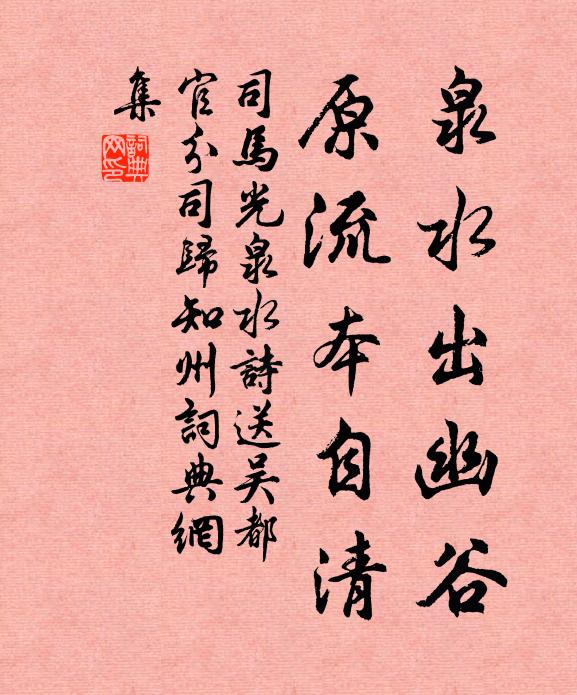 泉水出幽谷
原流本自清
司馬光泉水詩送吴都
官分司歸知州詞典網
集
詞典網印